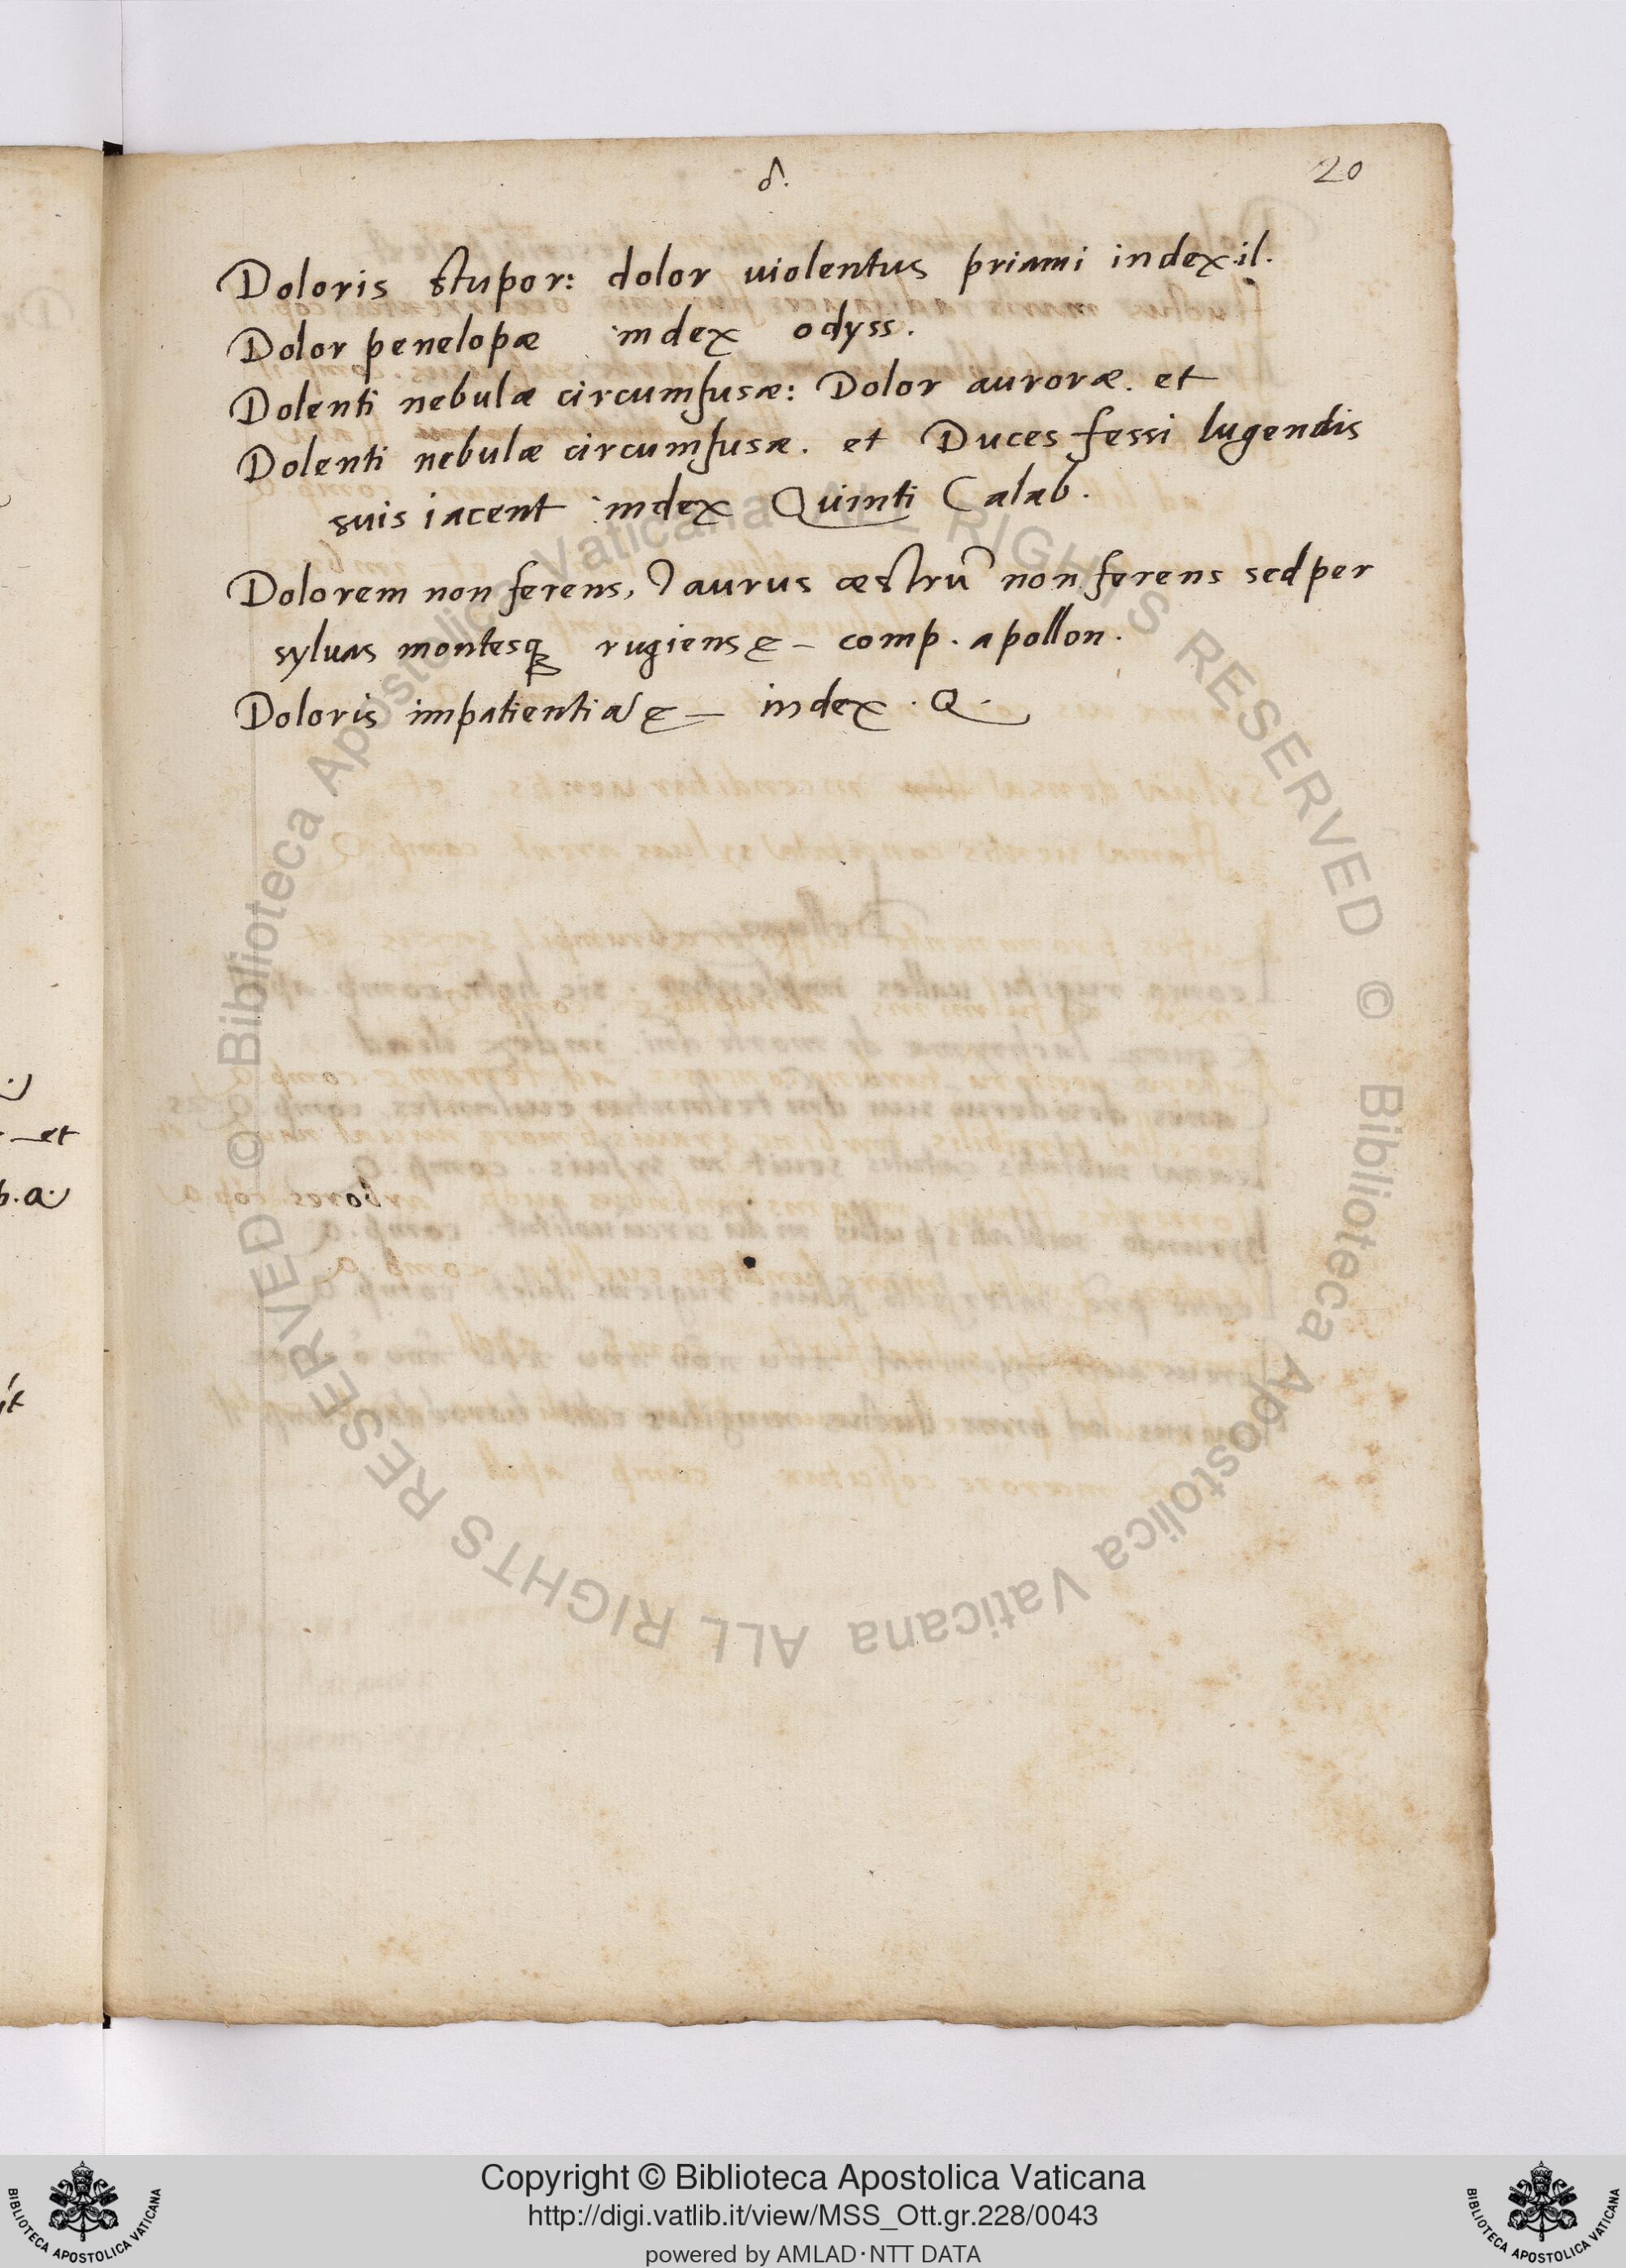 δ.
20
Doloris stupor: dolor uiolentus priami index.il.
Dolor penelopæ index odyss.
Dolenti nebulæ circumfusæ: Dolor auroræ. et
Dolenti nebulæ circumfusæ. et Duces fessi lugendis
suis iacent index Quinti Calab.
Dolorem non ferens, Taurus œstrũ non ferens sed per
syluas montesq; rugiens &- comp. apollon.
Doloris impatientia &- index . Q.
-et
b.a.
it
© Biblioteca Apostolica Vaticana ALL RIGHTS RESERVED
© Biblioteca Apostolica Vaticana ALL RIGHTS RESERVED
Copyright © Biblioteca Apostolica Vaticana
http://digi.vatlib.it/view/MSS_Ott.gr.228/0043
powered by AMLAD·NTT DATA
BIBLIOTECA APOSTOLICA VATICANA
BIBLIOTECA APOSTOLICA VATICANA